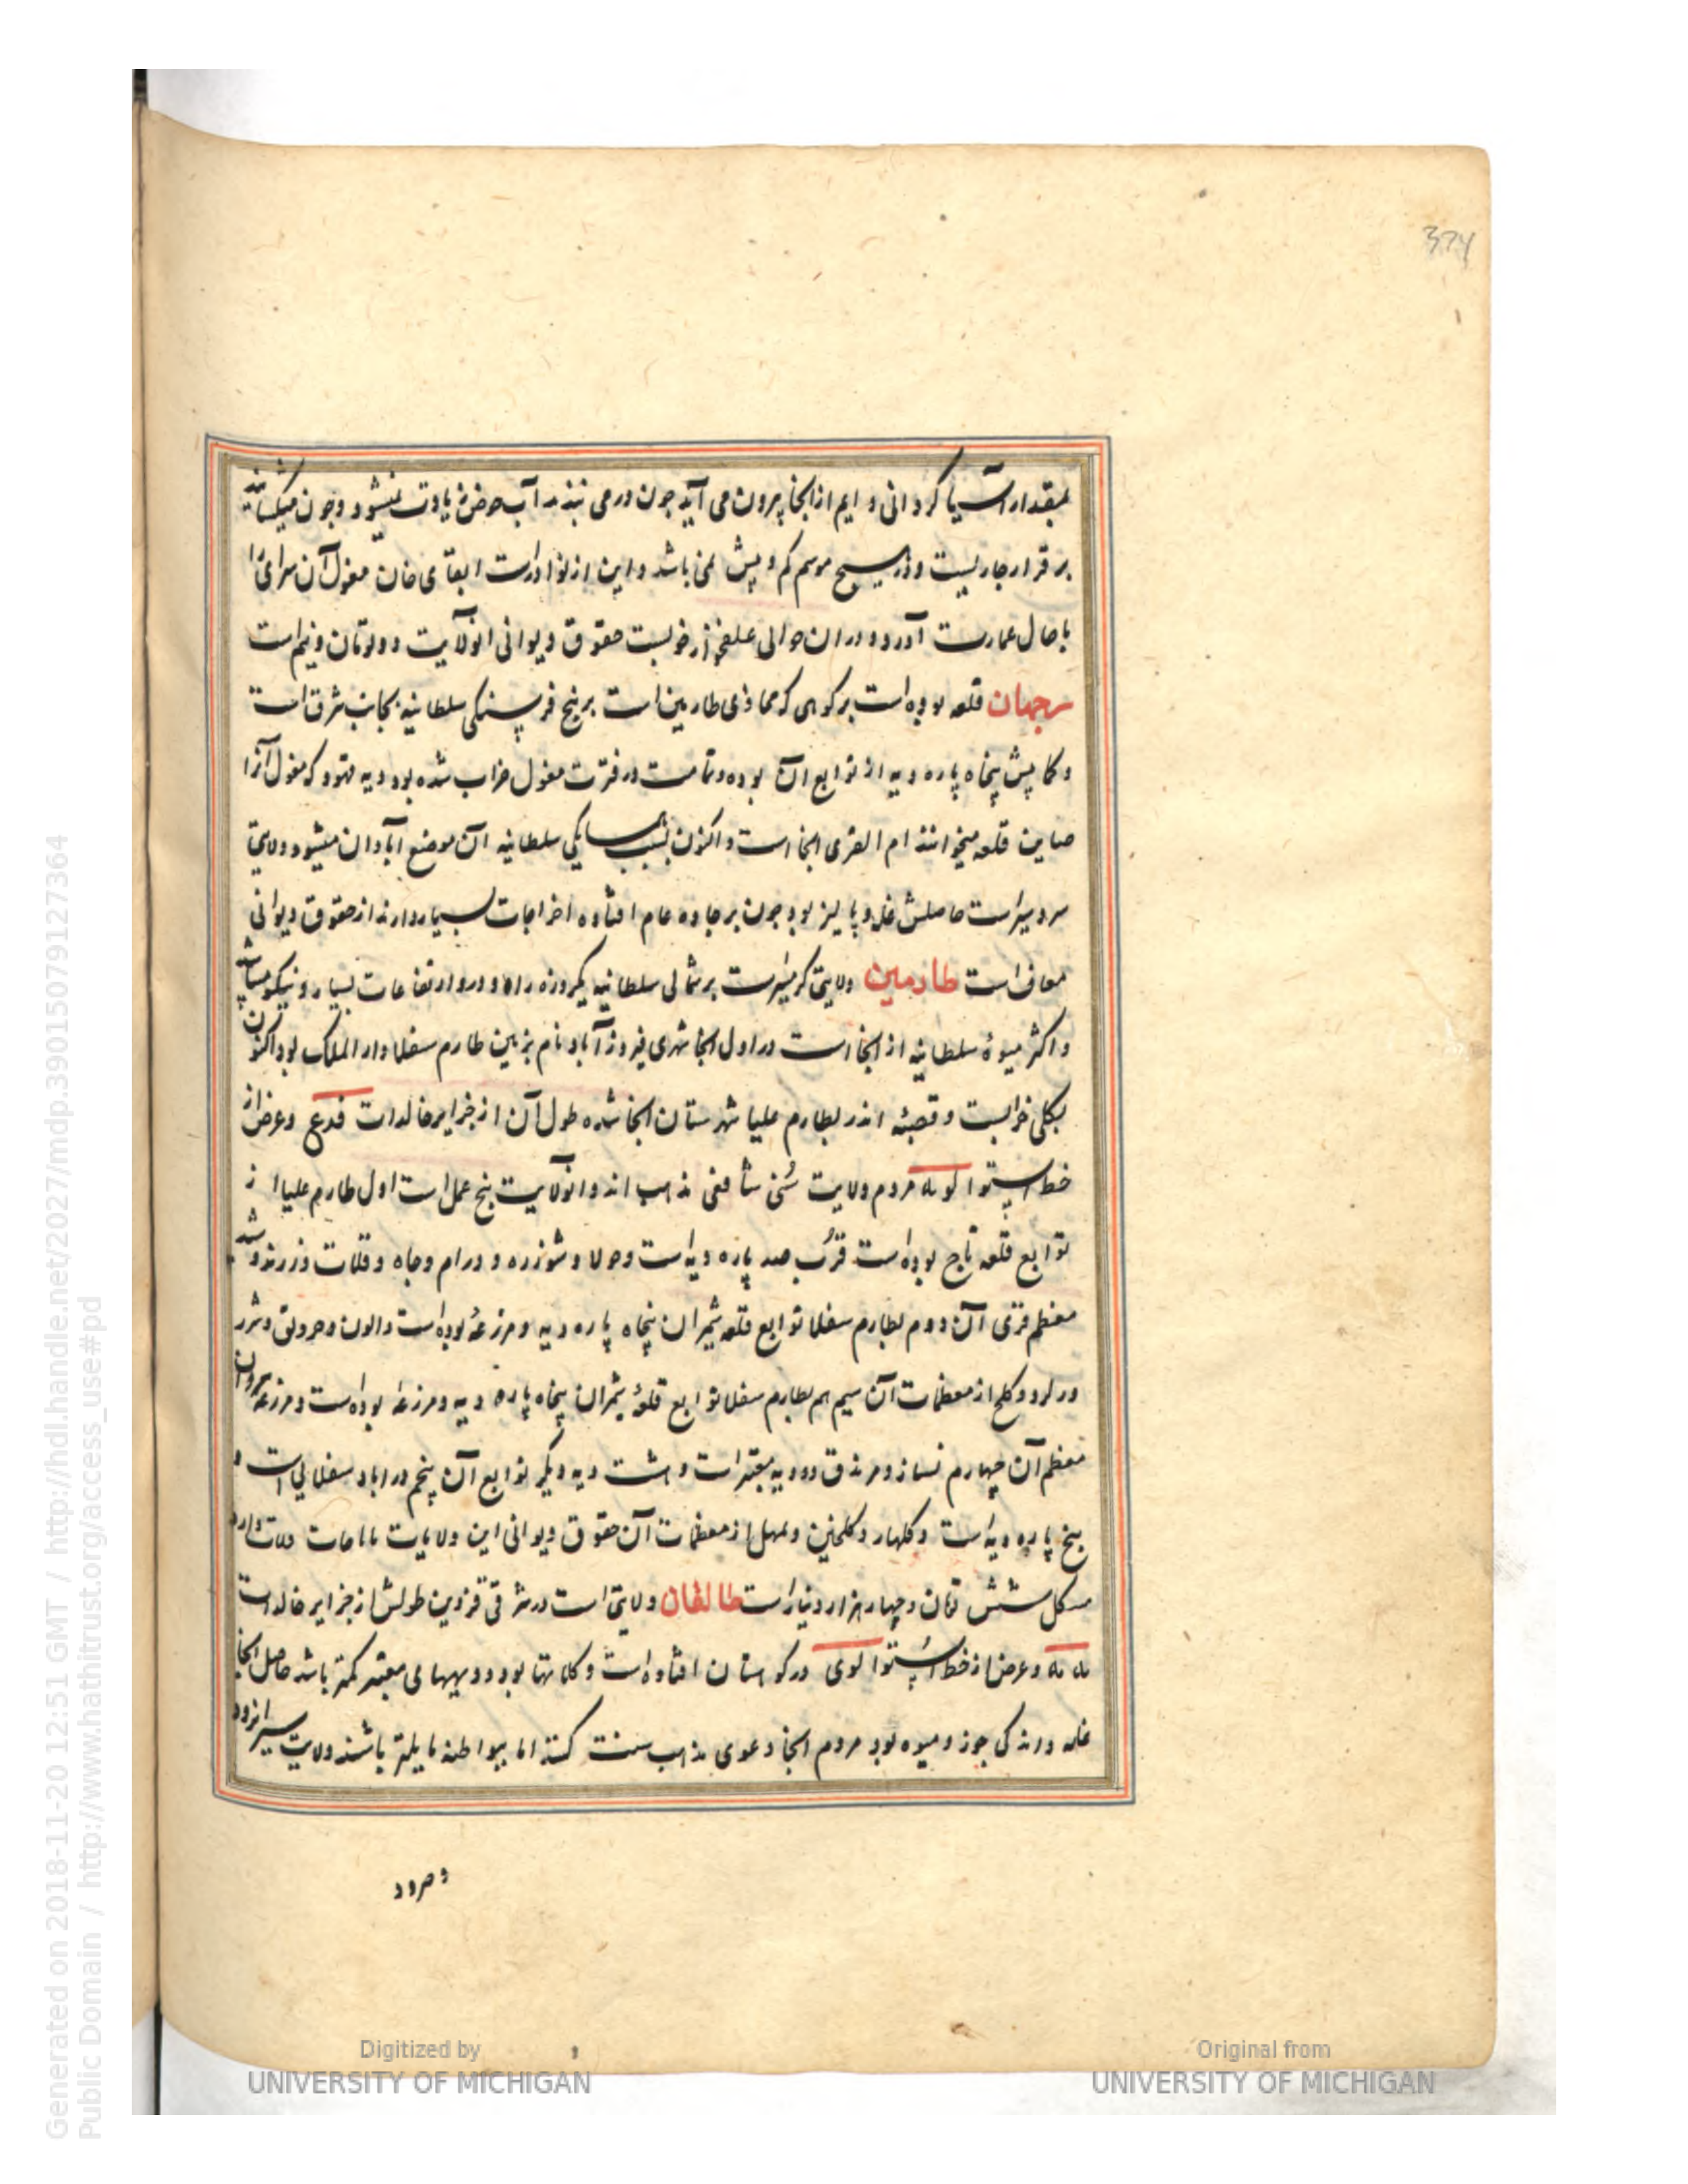 374
بمقدار آسیا گردانی دایم از انجا بیرون می آید چون در می بندند آب حوض زیادت نمیشود و چون میگشایند
بر قرار جاریست و در هیچ موسم کم و بیش نمی باشد و این از نوادرست ابقای خان مغول آن سرای را
باحال عمارت آورد و در ان حوالی علفخوار خوبست حقوق دیوانی انولایت دو تومان و نیم است
سرجهان قلعه بوده است بر کوهی که محاذی طارمین است بر پنج فرسنگی سلطانیه بجانب شرق است
و کما بیش پنجاه پاره دیه از توابع آن بوده و تمامت در فترت مغول خراب شده بود دیه قهود که مغول آنرا
صاین قلعه میخوانند ام القری انجا است و اکنون بسبب همسایگی سلطانیه آن موضع آبادان میشود ولایتی
سردسیر است حاصلش غله و پالیز بود چون بر جاده عام افتاده اخراجات بسیار دارند از حقوق دیوانی
معاف است طارمین ولایتی گرمسیر است بر شمالی سلطانیه یکروزه راه و در و ارتفاعات بسیار و نیکو میباشد
و اکثر میوهٔ سلطانیه از انجا است در اول انجا شهری فیروز آباد نام بزمین طارم سفلا دار الملک بود اکنون
بکلی خرابست و قصبهٔ اندر بطارم علیا شهرستان انجا شده طول آن از جزایر خالدات فدع و عرض از
خط استوا لو مه مردم ولایت سُنی شافعی مذهب اند و انولایت پنج عمل است اول طارم علیا از
توابع قلعه تاج بوده است قرُب صد پاره دیه است و حولا و شوزره و ورام و حاه و قلات و زرند و شید
معظم قری آن دوم بطارم سفلا توابع قلعه شمیران پنجاه پاره دیه و مزرعهٔ بوده است و الون و حرولق و شرر
ورلرد و کلج از معظمات آن سیم هم بطارم سفلا توابع قلعهٔ شمران پنجاه پاره دیه و مزرعه بوده است و مزرعه سروان
معظم آن چهارم نساز و مرذق دو دیه معتبر است و هشت دیه دیگر توابع آن پنجم دراباد سفلالی است و
پنج پاره دیه است و کلهار و کلجنین و مهل از معظمات آن حقوق دیوانی این ولایات
شش تومان و چهار هزار دینار است طالقان ولایتی است در شرقی قزوین طولش از جزایر خالدات
مه مه و عرض از خط استُوا لوی در کوهستان افتاده است و کلاتها بود و دیههای معتبر کمتر باشد حاصل انجا
غله و اندکی جوز و میوه بود مردم انجا دعوی مذهب سنت کنند اما ببواطنه مایلتر باشند ولایت سیرانرود
Generated on 2018-11-20 12:51 GMT / http://hdl.handle.net/2027/mdp.39015079127364
Public Domain / http://www.hathitrust.org/access_use#pd
Digitized by
UNIVERSITY OF MICHIGAN
Original from
UNIVERSITY OF MICHIGAN